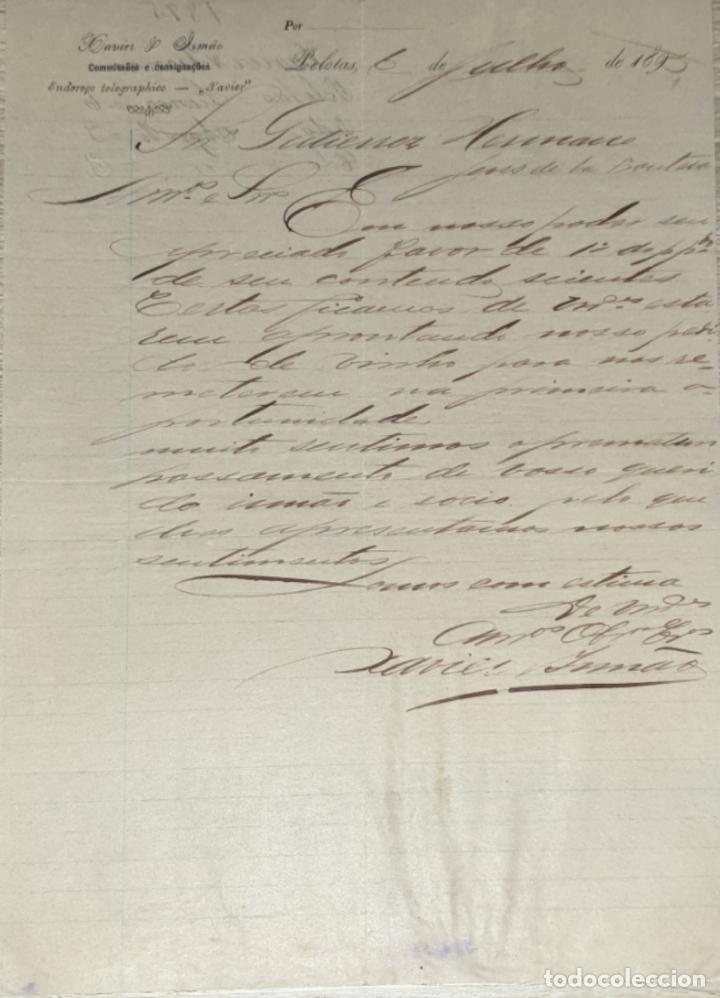 Por
Xavier & Irmão
Commissões e consignações
Endereço telegraphico — „Xavier"
Pelotas, 6 de Julho de 1895
Snr Gutierrez Hermano
Jerez de la Frontera
Am.os e Snrs
Em nosso poder seu
apreciado favor de 1º de pp.do
de seu contendo scientes
Certos ficamos de Vm.es esta
rem aprontando nosso pedi
do de vinho para nos re-
meterem na primeira o-
portunidade
muito sentimos o prematuro
passamento de vosso queri
do irmão e socio pelo que
apresentamos nossos
sentimentos
Somos com estima
De Vm.es
Am.os
Xavier & Irmão
todocoleccion
todocoleccion.net